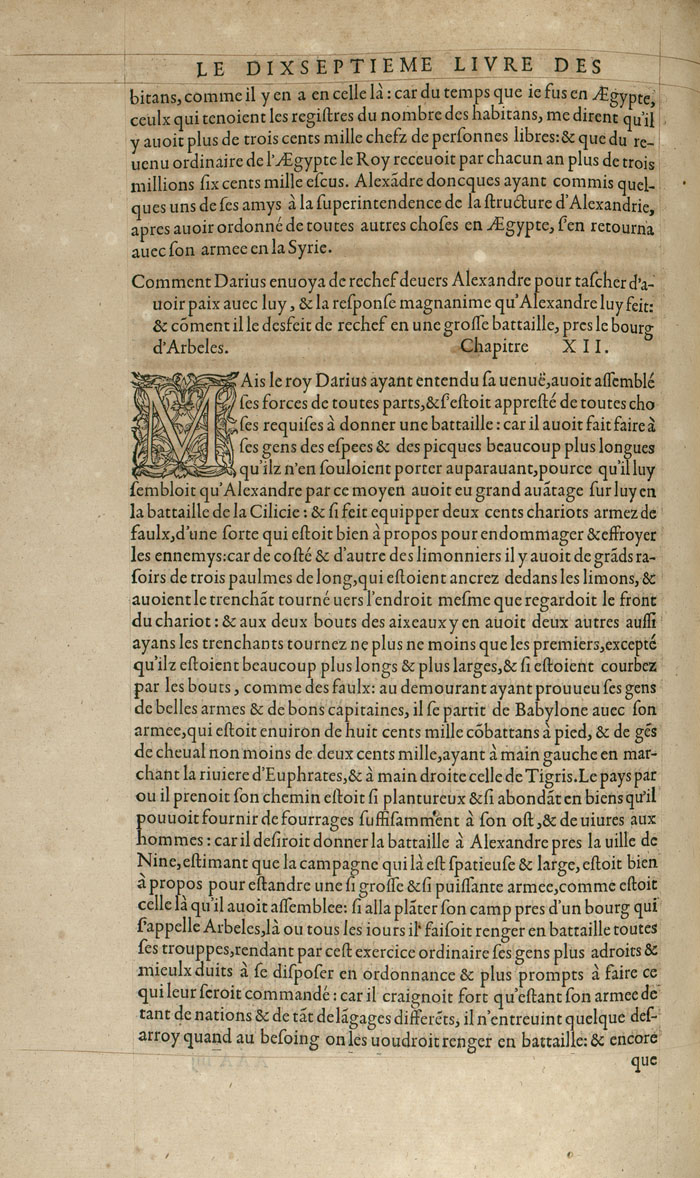 LE DIXSEPTIEME LIVRE DES
bitans, comme il y en a en celle là : car du temps que ie fus en Ægypte,
ceulx qui tenoient les regiſtres du nombre des habitans, me dirent qu'il
y auoit plus de trois cents mille chefz de perſonnes libres: & que du re-
uenu ordinaire de l'Ægypte le Roy receuoit par chacun an plus de trois
millions ſix cents mille eſcus. Alexãdre doncques ayant commis quel-
ques uns de ſes amys à la ſuperintendence de la ſtructure d'Alexandrie,
apres auoir ordonné de toutes autres choſes en Ægypte, ſ'en retourna
auec ſon armee en la Syrie.
Comment Darius enuoya de rechef deuers Alexandre pour taſcher d'a-
uoir paix auec luy, & la reſponſe magnanime qu'Alexandre luy feit:
& cõment il le desfeit de rechef en une groſſe battaille, pres le bourg
d'Arbeles. Chapitre XII.
MAis le roy Darius ayant entendu ſa uenuë, auoit aſſemblé
ſes forces de toutes parts, & ſ'eſtoit appreſté de toutes cho
ſes requiſes à donner une battaille : car il auoit fait faire à
ſes gens des eſpees & des picques beaucoup plus longues
qu'ilz n'en ſouloient porter auparauant, pource qu'il luy
ſembloit qu'Alexandre par ce moyen auoit eu grand auãtage ſur luy en
la battaille de la Cilicie : & ſi feit equipper deux cents chariots armez de
faulx, d'une ſorte qui eſtoit bien à propos pour endommager & effroyer
les ennemys: car de coſté & d'autre des limonniers il y auoit de grãds ra-
ſoirs de trois paulmes de long, qui eſtoient ancrez dedans les limons, &
auoient le trenchãt tourné uers l'endroit meſme que regardoit le front
du chariot : & aux deux bouts des aixeaux y en auoit deux autres auſſi
ayans les trenchants tournez ne plus ne moins que les premiers, excepté
qu'ilz eſtoient beaucoup plus longs & plus larges, & ſi eſtoient courbez
par les bouts, comme des faulx: au demourant ayant prouueu ſes gens
de belles armes & de bons capitaines, il ſe partit de Babylone auec ſon
armee, qui eſtoit enuiron de huit cents mille cõbattans à pied, & de gẽs
de cheual non moins de deux cents mille, ayant à main gauche en mar-
chant la riuiere d'Euphrates, & à main droite celle de Tigris. Le pays par
ou il prenoit ſon chemin eſtoit ſi plantureux & ſi abondãt en biens qu'il
pouuoit fournir de fourrages ſuffiſamment à ſon oſt, & de uiures aux
hommes : car il deſiroit donner la battaille à Alexandre pres la uille de
Niniue, eſtimant que la campagne qui là eſt ſpatieuſe & large, eſtoit bien
à propos pour eſtandre une ſi groſſe & ſi puiſſante armee, comme eſtoit
celle là qu'il auoit aſſemblee: ſi alla plãter ſon camp pres d'un bourg qui
ſ'appelle Arbeles, là ou tous les iours il faiſoit renger en battaille toutes
ſes trouppes, rendant par ceſt exercice ordinaire ſes gens plus adroits &
mieulx duits à ſe diſpoſer en ordonnance & plus prompts à faire ce
qui leur ſeroit commandé : car il craignoit fort qu'eſtant ſon armee de
tant de nations & de tãt de lãgages differẽts, il n'entreuint quelque deſ-
arroy quand au beſoing on les uoudroit renger en battaille: & encore
que